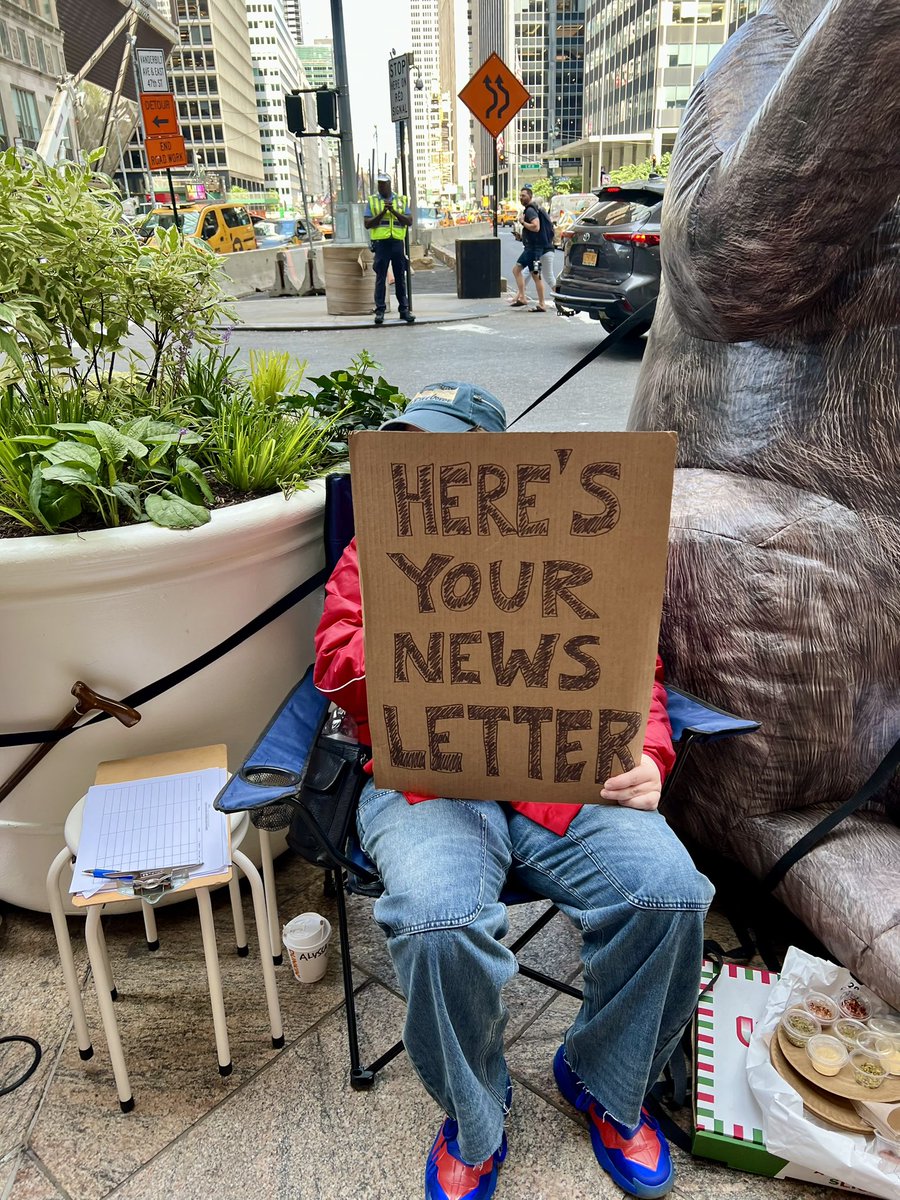 VANDERBILT
AVE & EAST
47th ST
DETOUR
END
ROAD WORK
STOP
HERE ON
RED
SIGNAL
HERE'S
YOUR
NEWS
LETTER